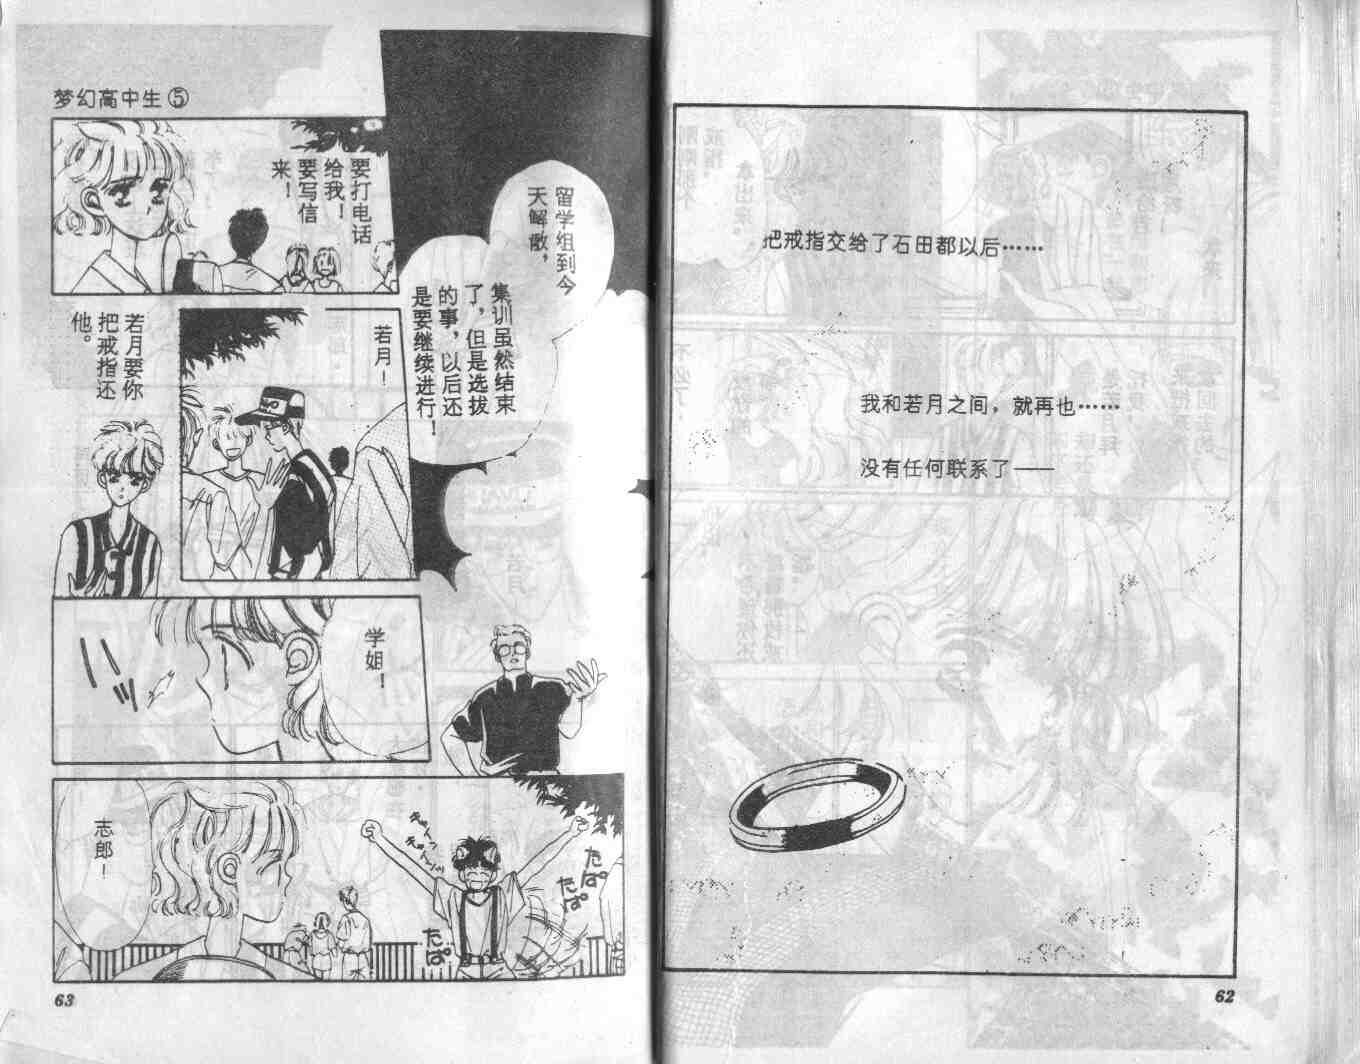 把戒指交给了石田都以后……
我和若月之间，就再也……
没有任何联系了——
62
梦幻高中生⑤
留学组到今
天解散，
集训虽然结束
了，但是选拔
的事，以后还
是要继续进行！
要打电话
给我！
要写信
来！
若月！
若月要你
把戒指还
他。
学姐！
たぱ。
たぱ。
たぱ。
志郎！
63